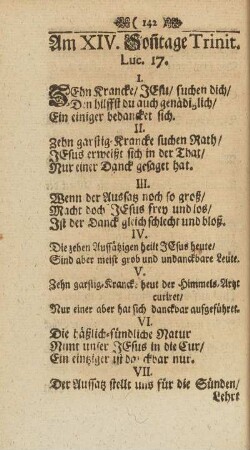 ( 142 )
Am XIV. Sontage Trinit.
Luc. 17.
I.
Zehn Krancke/ JEsu/ suchen dich/
Den hilffst du auch genädiglich/
Ein einiger bedancket sich.
II.
Zehn garstig-Krancke suchen Rath/
JEsus erweißt sich in der That/
Nur einer Danck gesaget hat.
III.
Wenn der Aussatz noch so groß/
Macht doch JEsus frey und los/
Ist der Danck gleich schlecht und bloß.
IV.
Die zehen Aussätzigen heilt JEsus heute/
Sind aber meist grob und undanckbare Leute.
V.
Zehn garstig-Krancke heut der Himmels-Artzt
curiret/
Nur einer aber hat sich danckbar aufgeführet.
VI.
Die häßlich-sündliche Natur
Nimt unser JEsus in die Cur/
Ein eintziger ist danckbar nur.
VII.
Der Aussatz stellt uns für die Sünden/
Lehrt